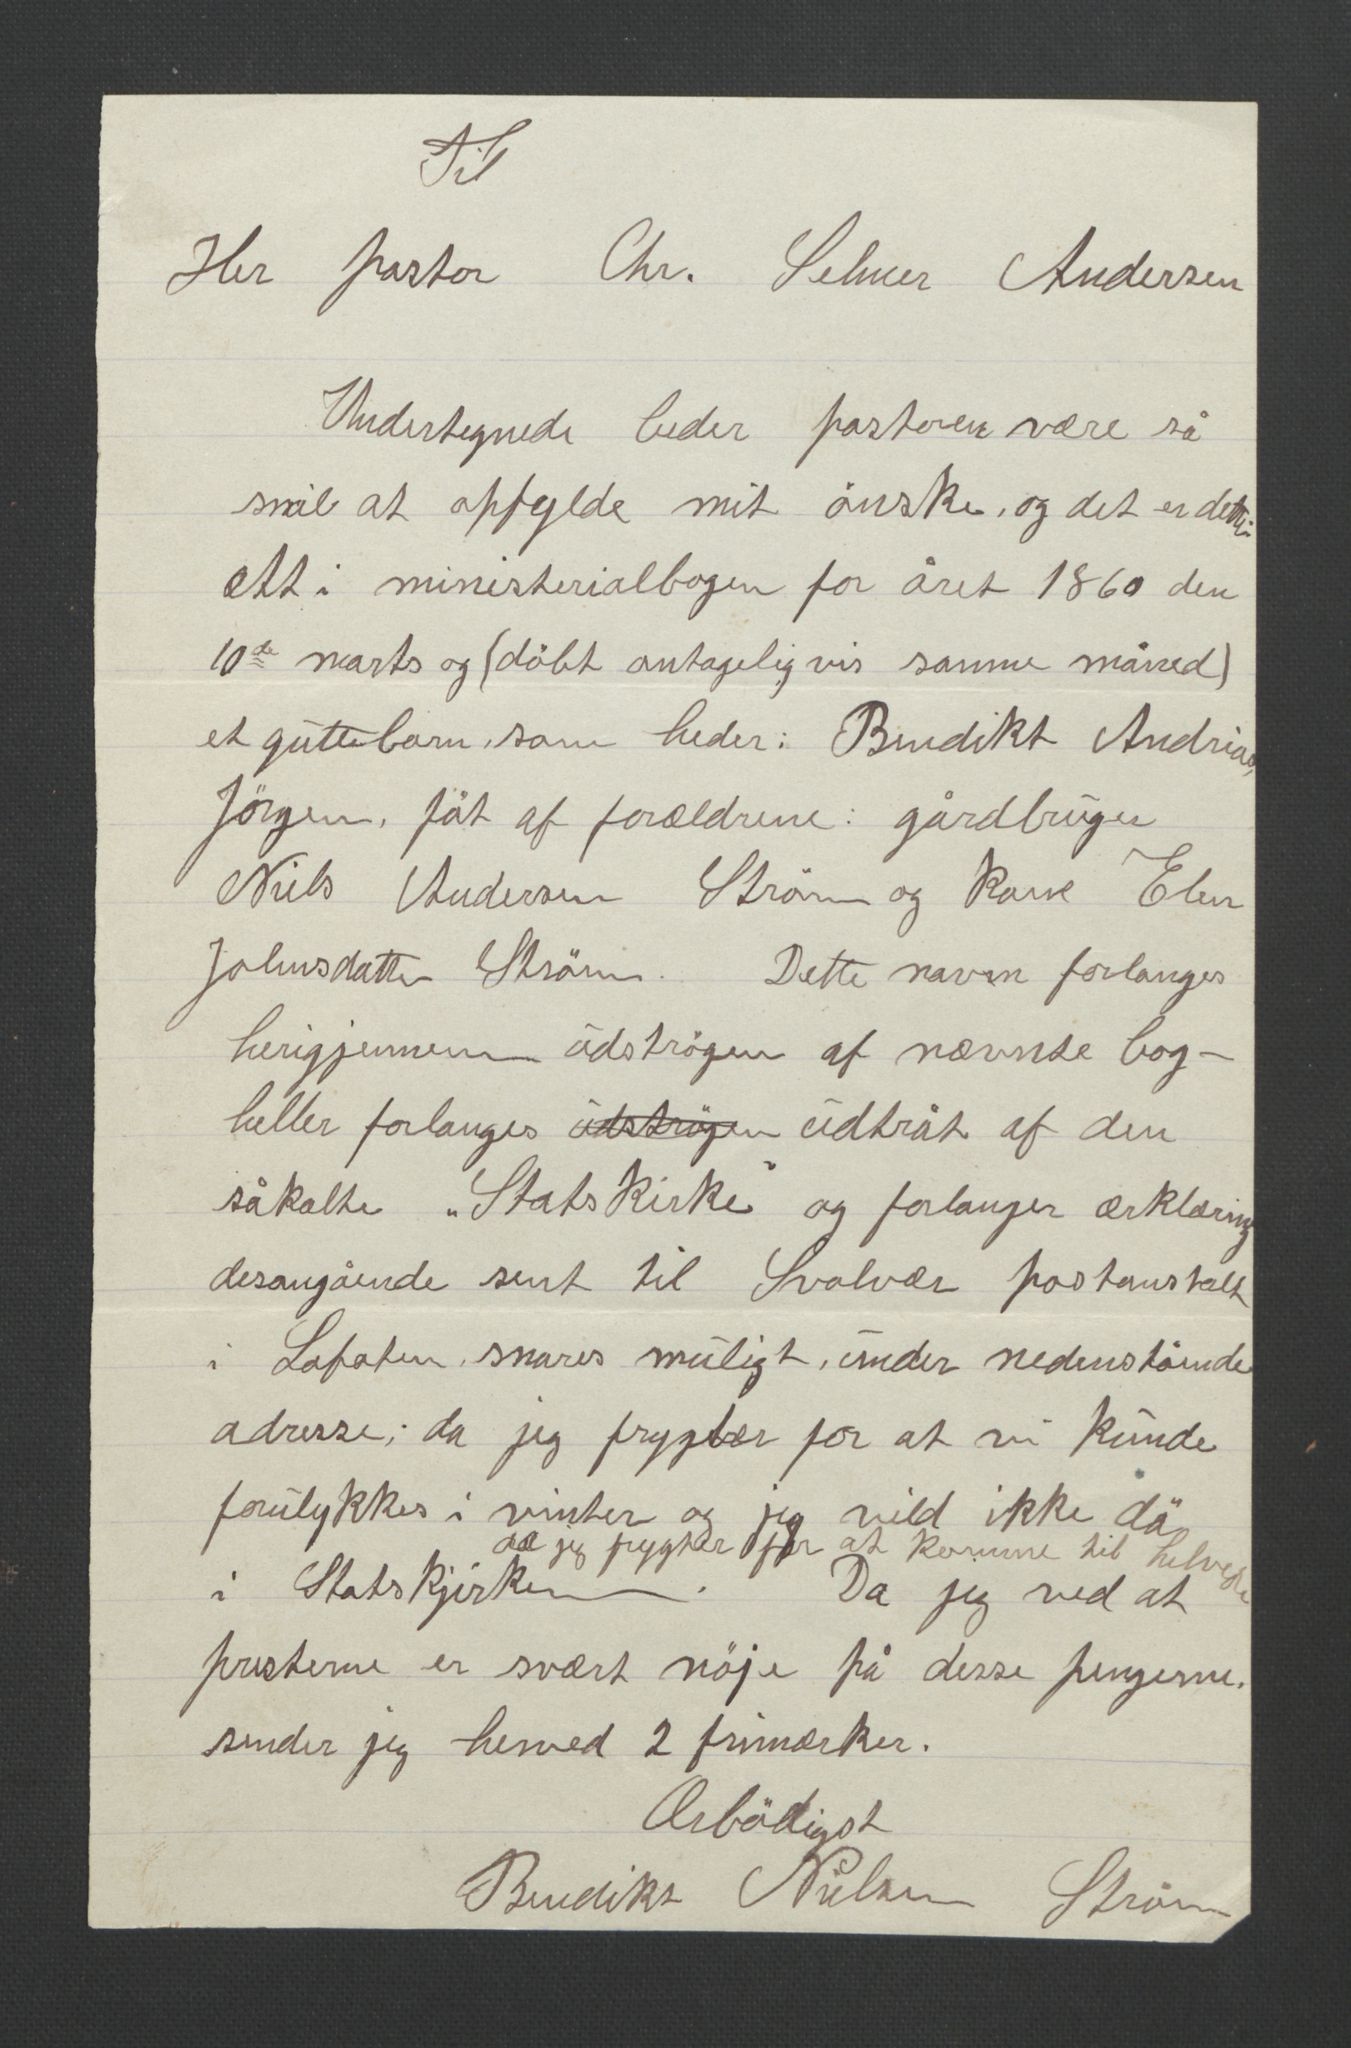 Til
Her pastor Chr. Selmer Andersen
Undertegnede beder pastoren være så
snil at opfylde mit önske, og det er dette:
att i ministerialbogen for året 1860 den
10de marts og (döbt antagelig vis samme måned)
et guttebarn, som heder: Bendikt Andrias,
Jörgen, föt af forældrene: gårdbruger
Niels Andersen Ström og kone Elen
Johnsdatter Ström. Dette navn forlanges
herigjennem udströgen af nævnte bog-
heller forlanges udströgen udtråt af den
såkalte „Statskirke" og forlanger ærklæring
desangående sent til Svolvær postanstalt
i Lofoten, snares muligt, under nedenstående
adresse; da jeg frygter for at vi kunde
forulykkes i vinter og jeg vild ikke dö
da jeg frygter for at komme til helvede
i Statskjirken. Da jeg ved at
presterne er svært nöje på desse pengerne.
sender jeg herved 2 frimærker.
Ærbödigst
Bendikt Nielsen Ström